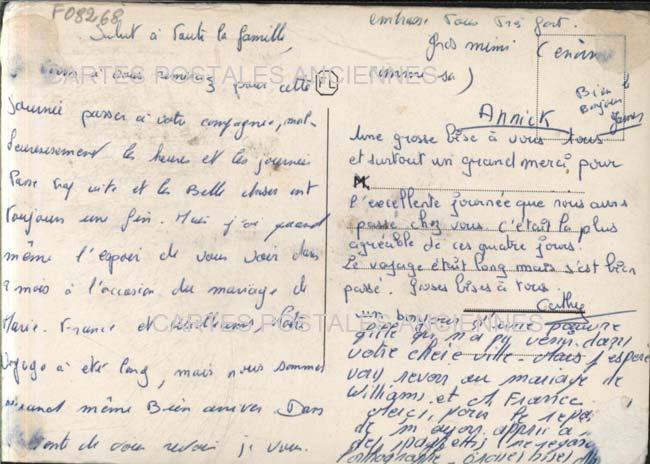 F08268
Salut à toute la famille,
à vous remercier pour cette
journée passer à votre compagnie, mal-
heureusement les heures et les journées
Passe trop vite et les Belle choses ont
Toujours une fin. Mais j'ai quand
même l'espoir de vous voir dans
2 mois à l'occasion du mariage de
Marie-France et Williams, Notre
voyage à été long, mais nous sommes
quand même Bien arriver. Dans
de vous revoir je vous
embrasse Tous Très fort.
gros mimi (énorme
immense)
Annick
FL
Bien le
Bonjour
James
Une grosse bise à vous tous
et surtout un grand merci pour
l'excellente journée que nous avons
passé chez vous. C'était la plus
agréable de ces quatre jours.
Le voyage était long mais s'est bien
passé. Grosses bises à tous.
Cathy
un bonjour
qu'elle qui n'a pu venir dans
votre chère ville. Mais j'espère
vous revoir au mariage de
Williams et M France.
Merci pour le repas
de m'avoir appris à
des spaghettis
orthographe. Grosses bises
CARTES POSTALES ANCIENNES
CARTES POSTALES ANCIENNES